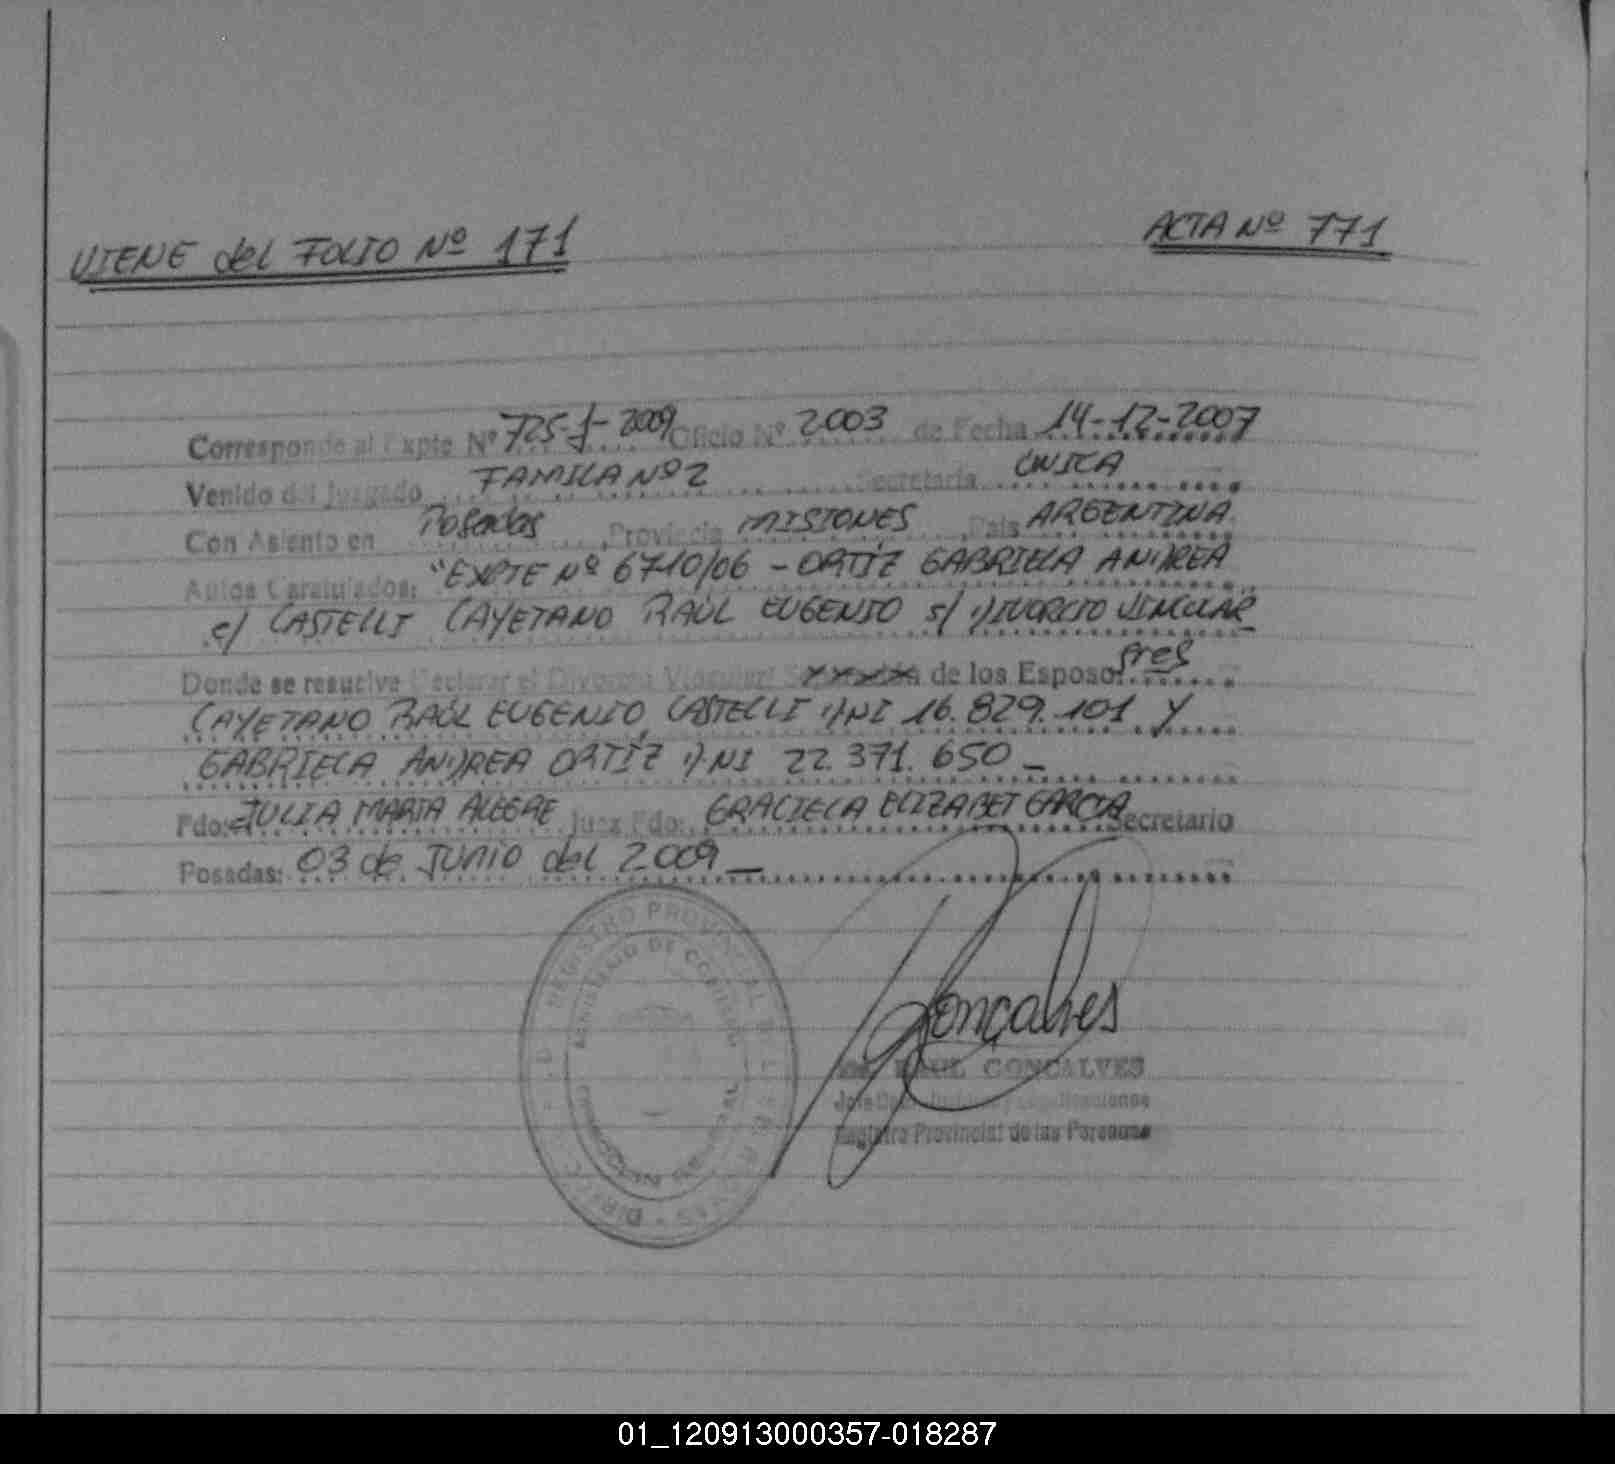 VIENE del FOLIO Nº 171
ACTA Nº 771
Corresponde al Expte Nº 725-J-2009 Oficio Nº 2003 de Fecha 14-12-2007
Venido del Juzgado FAMILA Nº 2 Secretaria UNICA
Con Asiento en Posadas, Provincia MISIONES, Pais ARGENTINA
Autos Caratulados: "EXPTE Nº 6710/06 - ORTÍZ GABRIELA ANDREA
c/ CASTELLI CAYETANO RAÚL EUGENIO s/ DIVORCIO VINCULAR
Donde se resuelve Declarar el Divorcio Vincular/ de los Esposo: Sres
CAYETANO RAÚL EUGENIO CASTELLI DNI 16.829.101 Y
GABRIELA ANDREA ORTÍZ DNI 22.371.650 -
Fdo: JULIA MARIA ALEGRE Juez Fdo: GRACIELA ELIZABET GARCIA Secretario
Posadas: 03 de JUNIO del 2009 -
REGISTRO PROVINCIAL DE LAS PERSONAS
MINISTERIO DE GOBIERNO
Goncalves
RAUL GONCALVES
Registro Provincial de las Personas
01_120913000357-018287